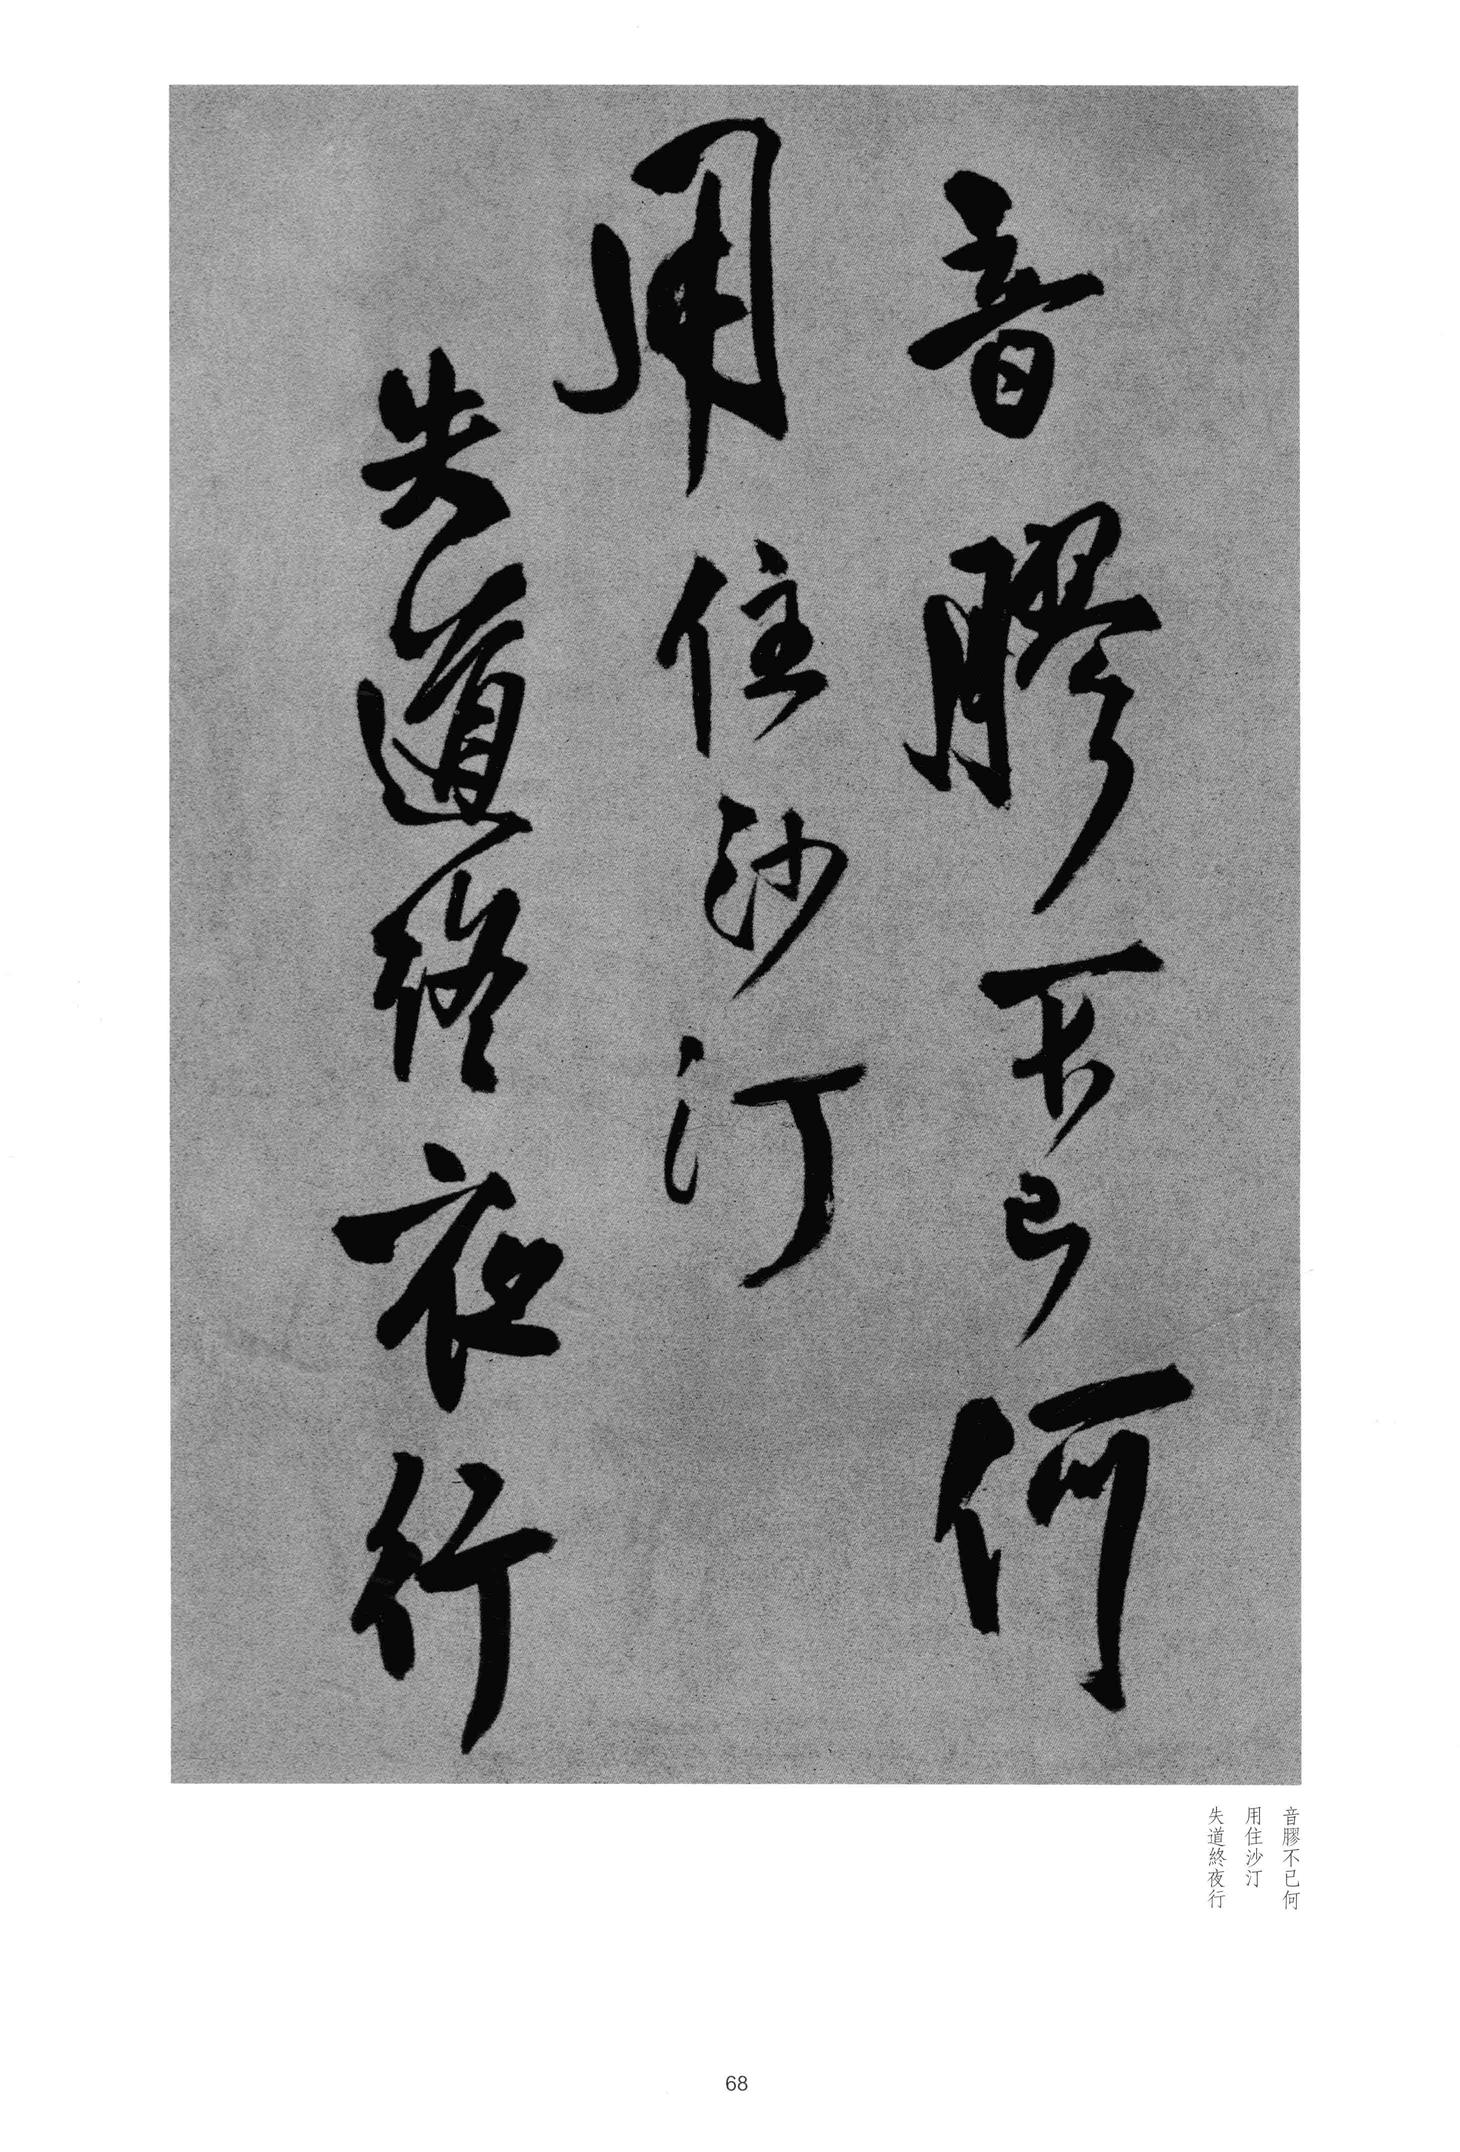 音膠不已何
用住沙汀
失道終夜行
音膠不已何
用住沙汀
失道終夜行
68